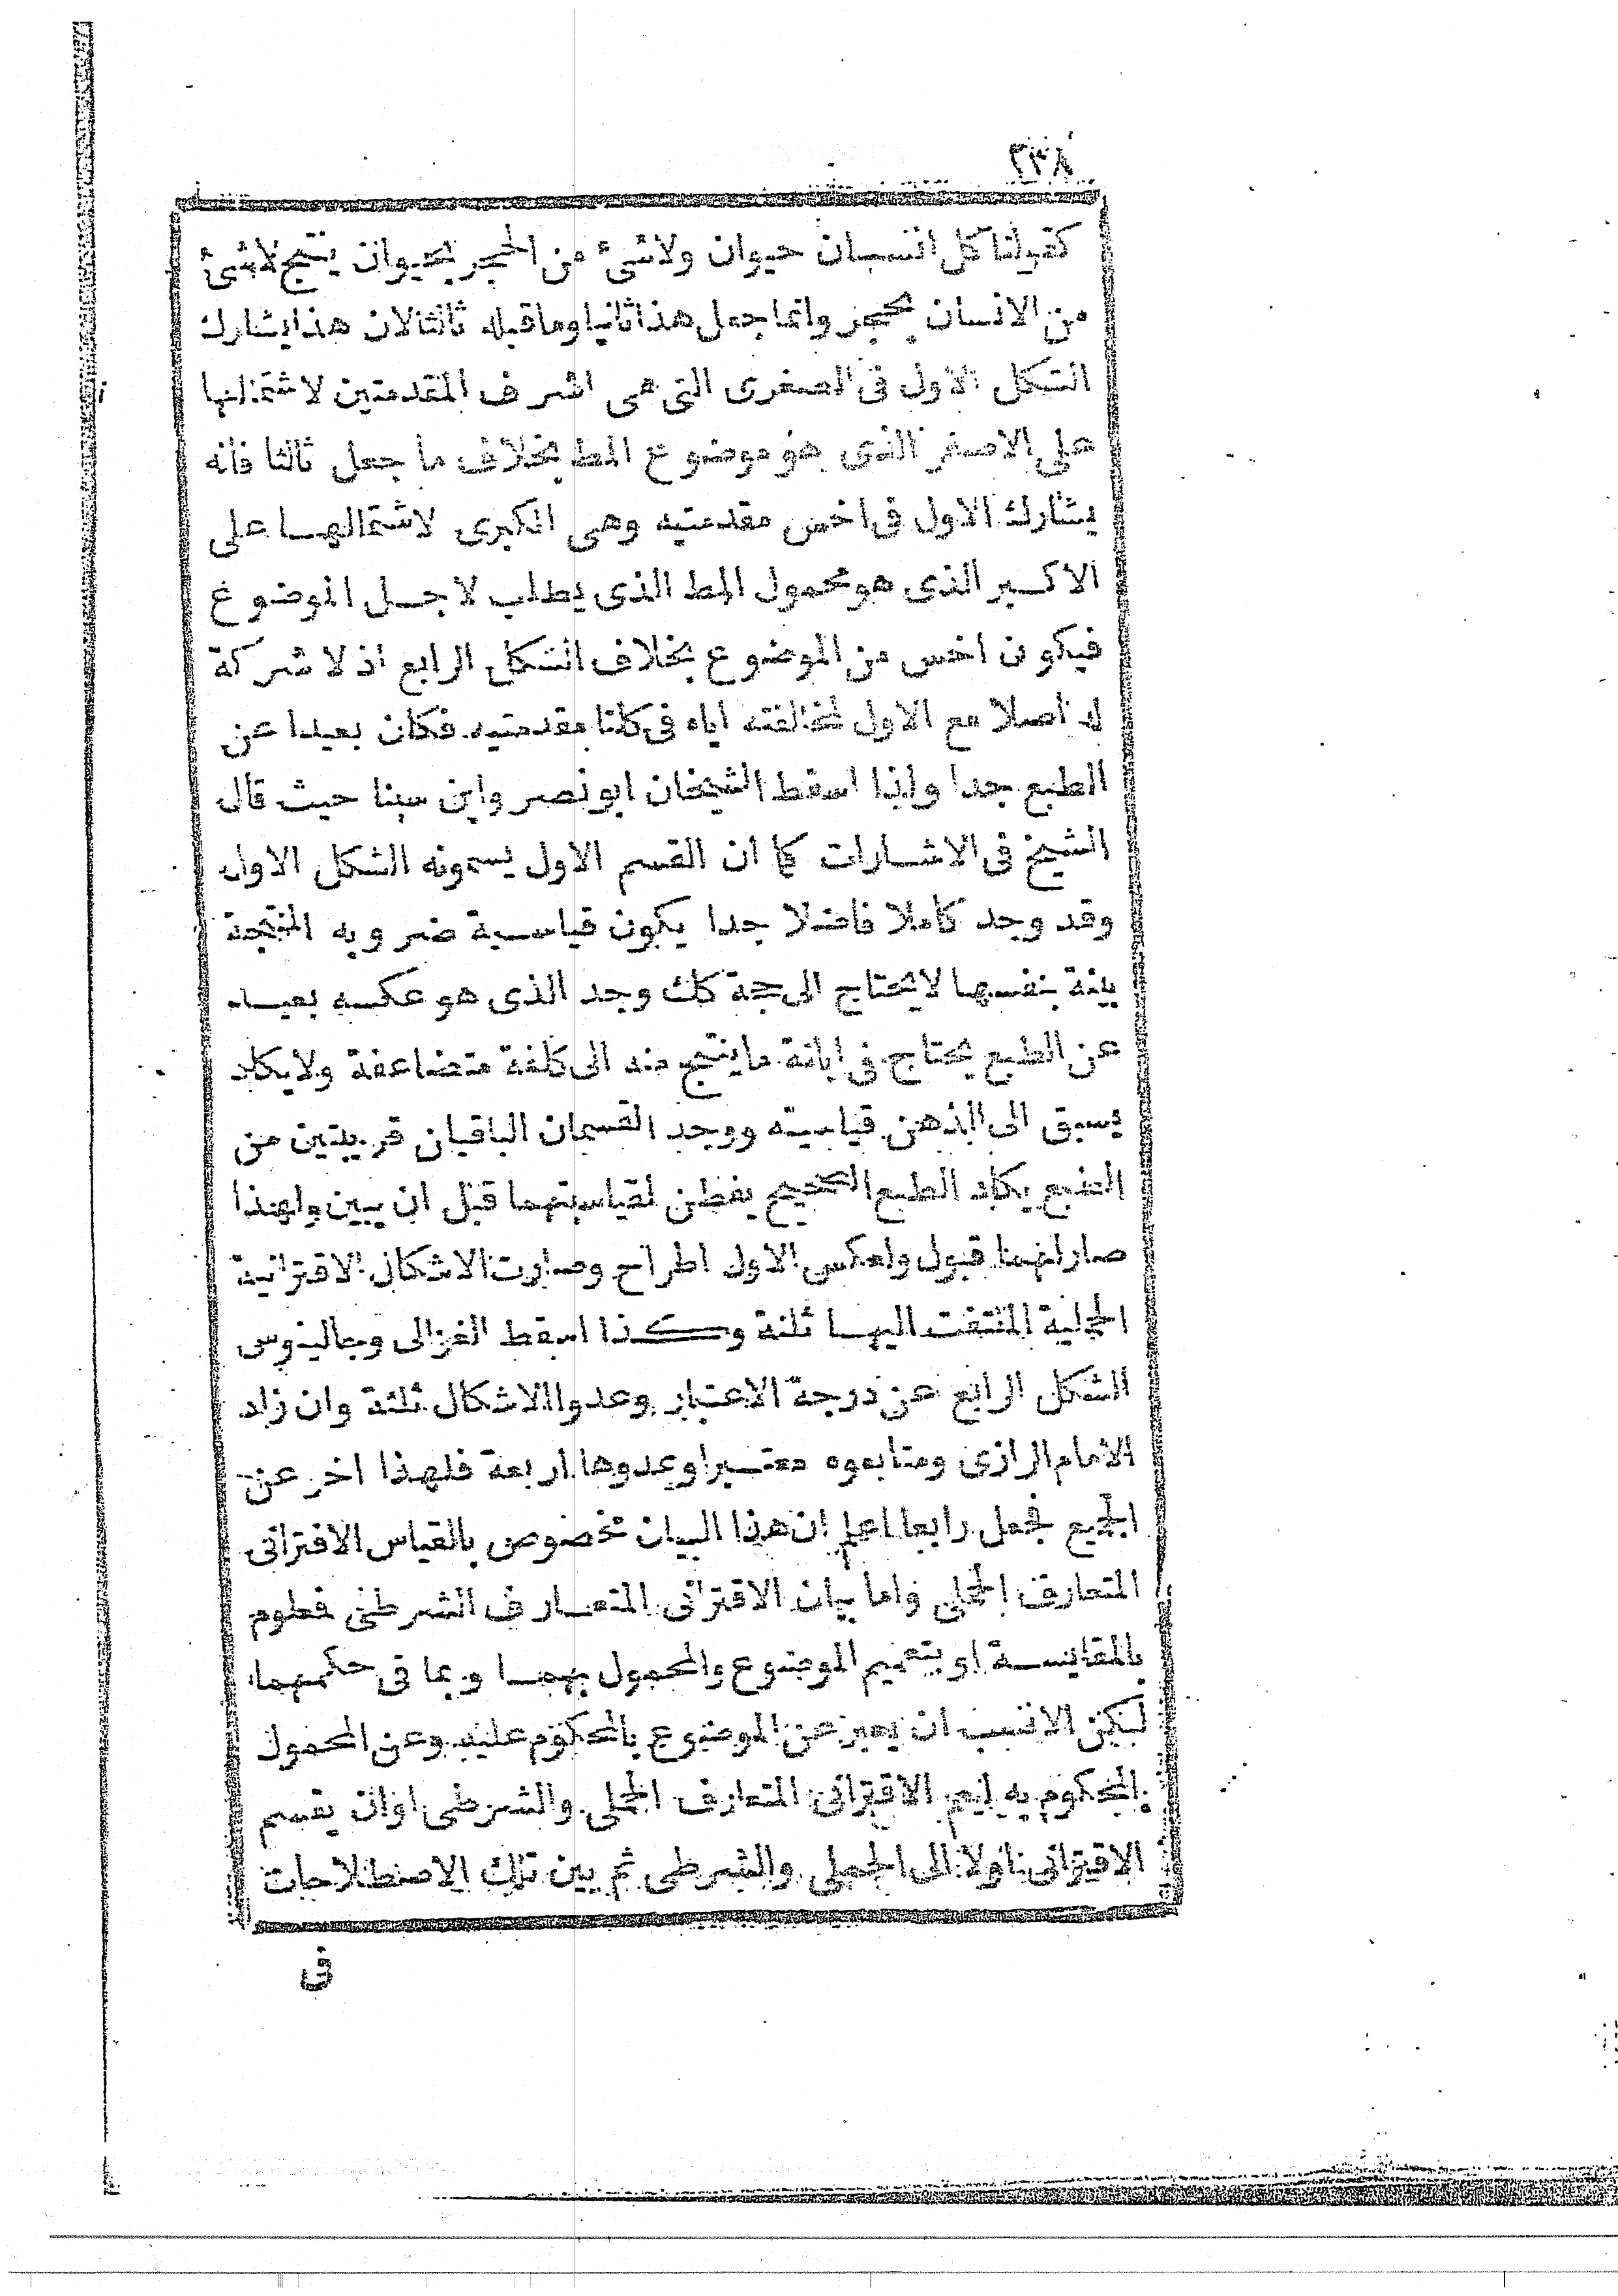 ٢٣٨
كقولنا كل انسان حيوان ولاشئ من الحجر بحيوان ينتج لاشئ
من الانسان بحجر وانما جعل هذا ثانيا وما قبله ثالثا لان هذا يشارك
الشكل الاول فى الصغرى التى هى اشرف المقدمتين لاشتمالها
على الاصغر الذى هو موضوع المط بخلاف ما جعل ثالثا فانه
يشارك الاول فى اخس مقدمتيه وهى الكبرى لاشتمالهــا على
الاكــبر الذى هو محمول المط الذى يطلب لاجــل الموضوع
فيكون اخس من الموضوع بخلاف الشكل الرابع اذ لا شركة
له اصلا مع الاول لمخالفته اياه فى كلتا مقدمتيه فكان بعيدا عن
الطبع جدا ولذا اسقط الشيخان ابو نصر وابن سينا حيث قال
الشيخ فى الاشــارات كما ان القسم الاول يسمونه الشكل الاول
وقد وجد كاملا فاضلا جدا يكون قياسية ضروبه المنتجة
بينة بنفسها لايحتاج الى حجة كك وجد الذى هو عكسه بعيــد
عن الطبع يحتاج فى ابانة ما ينتج منه الى كلفة متضاعفة ولا يكاد
يسبق الى الذهن قياسيته ووجد القسمان الباقيان قريبتين من
الطبع يكاد الطبع الصحيح يفطن لقياسيتهما قبل ان يبين ولهذا
صار لهما قبول ولعكس الاول اطراح وصارت الاشكال الاقترانية
الحملية الملتفت اليهــا ثلثة وكــذا اسقط الغزالى وجالينوس
الشكل الرابع عن درجة الاعتبار وعدوا الاشكال ثلثة وان زاد
الامام الرازى ومتابعوه معتــبرا وعدوها اربعة فلهذا اخر عن
الجميع فجعل رابعا اعلم ان هذا البيان مخصوص بالقياس الاقترانى
المتعارف الحملى واما بيان الاقترانى المتعــارف الشرطى فعلوم
بالمقايســة او بتعميم الموضوع والمحمول بهمــا وبما فى حكمهما
لكن الانسب ان يعبر عن الموضوع بالمحكوم عليه وعن المحمول
بالمحكوم به ليعم الاقترانى المتعارف الحملى والشرطى او ان يقسم
الاقترانى اولا الى الحملى والشرطى ثم بين تلك الاصطلاحات
فى